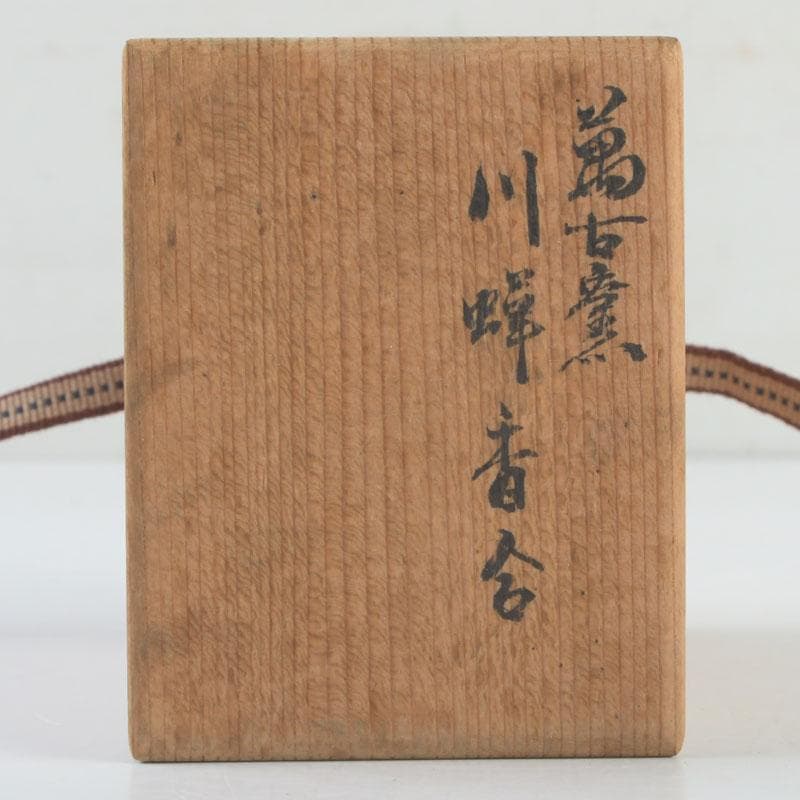 萬古窯
川蝉香合